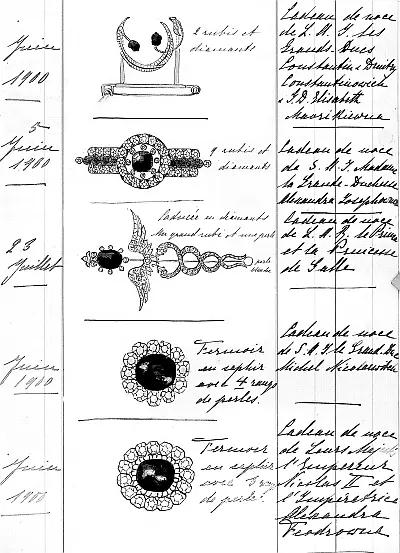 Juin
1900
2 rubis et
diamants
Cadeau de noce
de L. A. I. les
Grands-Ducs
Constantin & Dmitry
Constantinowich
& I. D. Elisabeth
Mavrikiewna
5
Juin
1900
9 rubis et
diamants
Cadeau de noce
de S. A. I. Madame
la Grande-Duchesse
Alexandra Josephowna
23
Juillet
Caducée en diamants
un grand rubis et une perle
perle
blanche
Cadeau de noce
de L. A. R. le Prince
et la Princesse
de Galle
Juin
1900
Fermoir
en saphir
avec 4 rangs
de perles.
Cadeau de noce
de S. A. I. le Grand-Duc
Michel Nicolaewitch
Juin
1900
Fermoir
en saphir
avec
de perles.
Cadeau de noce
de Leurs Majestés
l'Empereur
Nicolas II et
l'Impératrice
Alexandra
Feodrowna